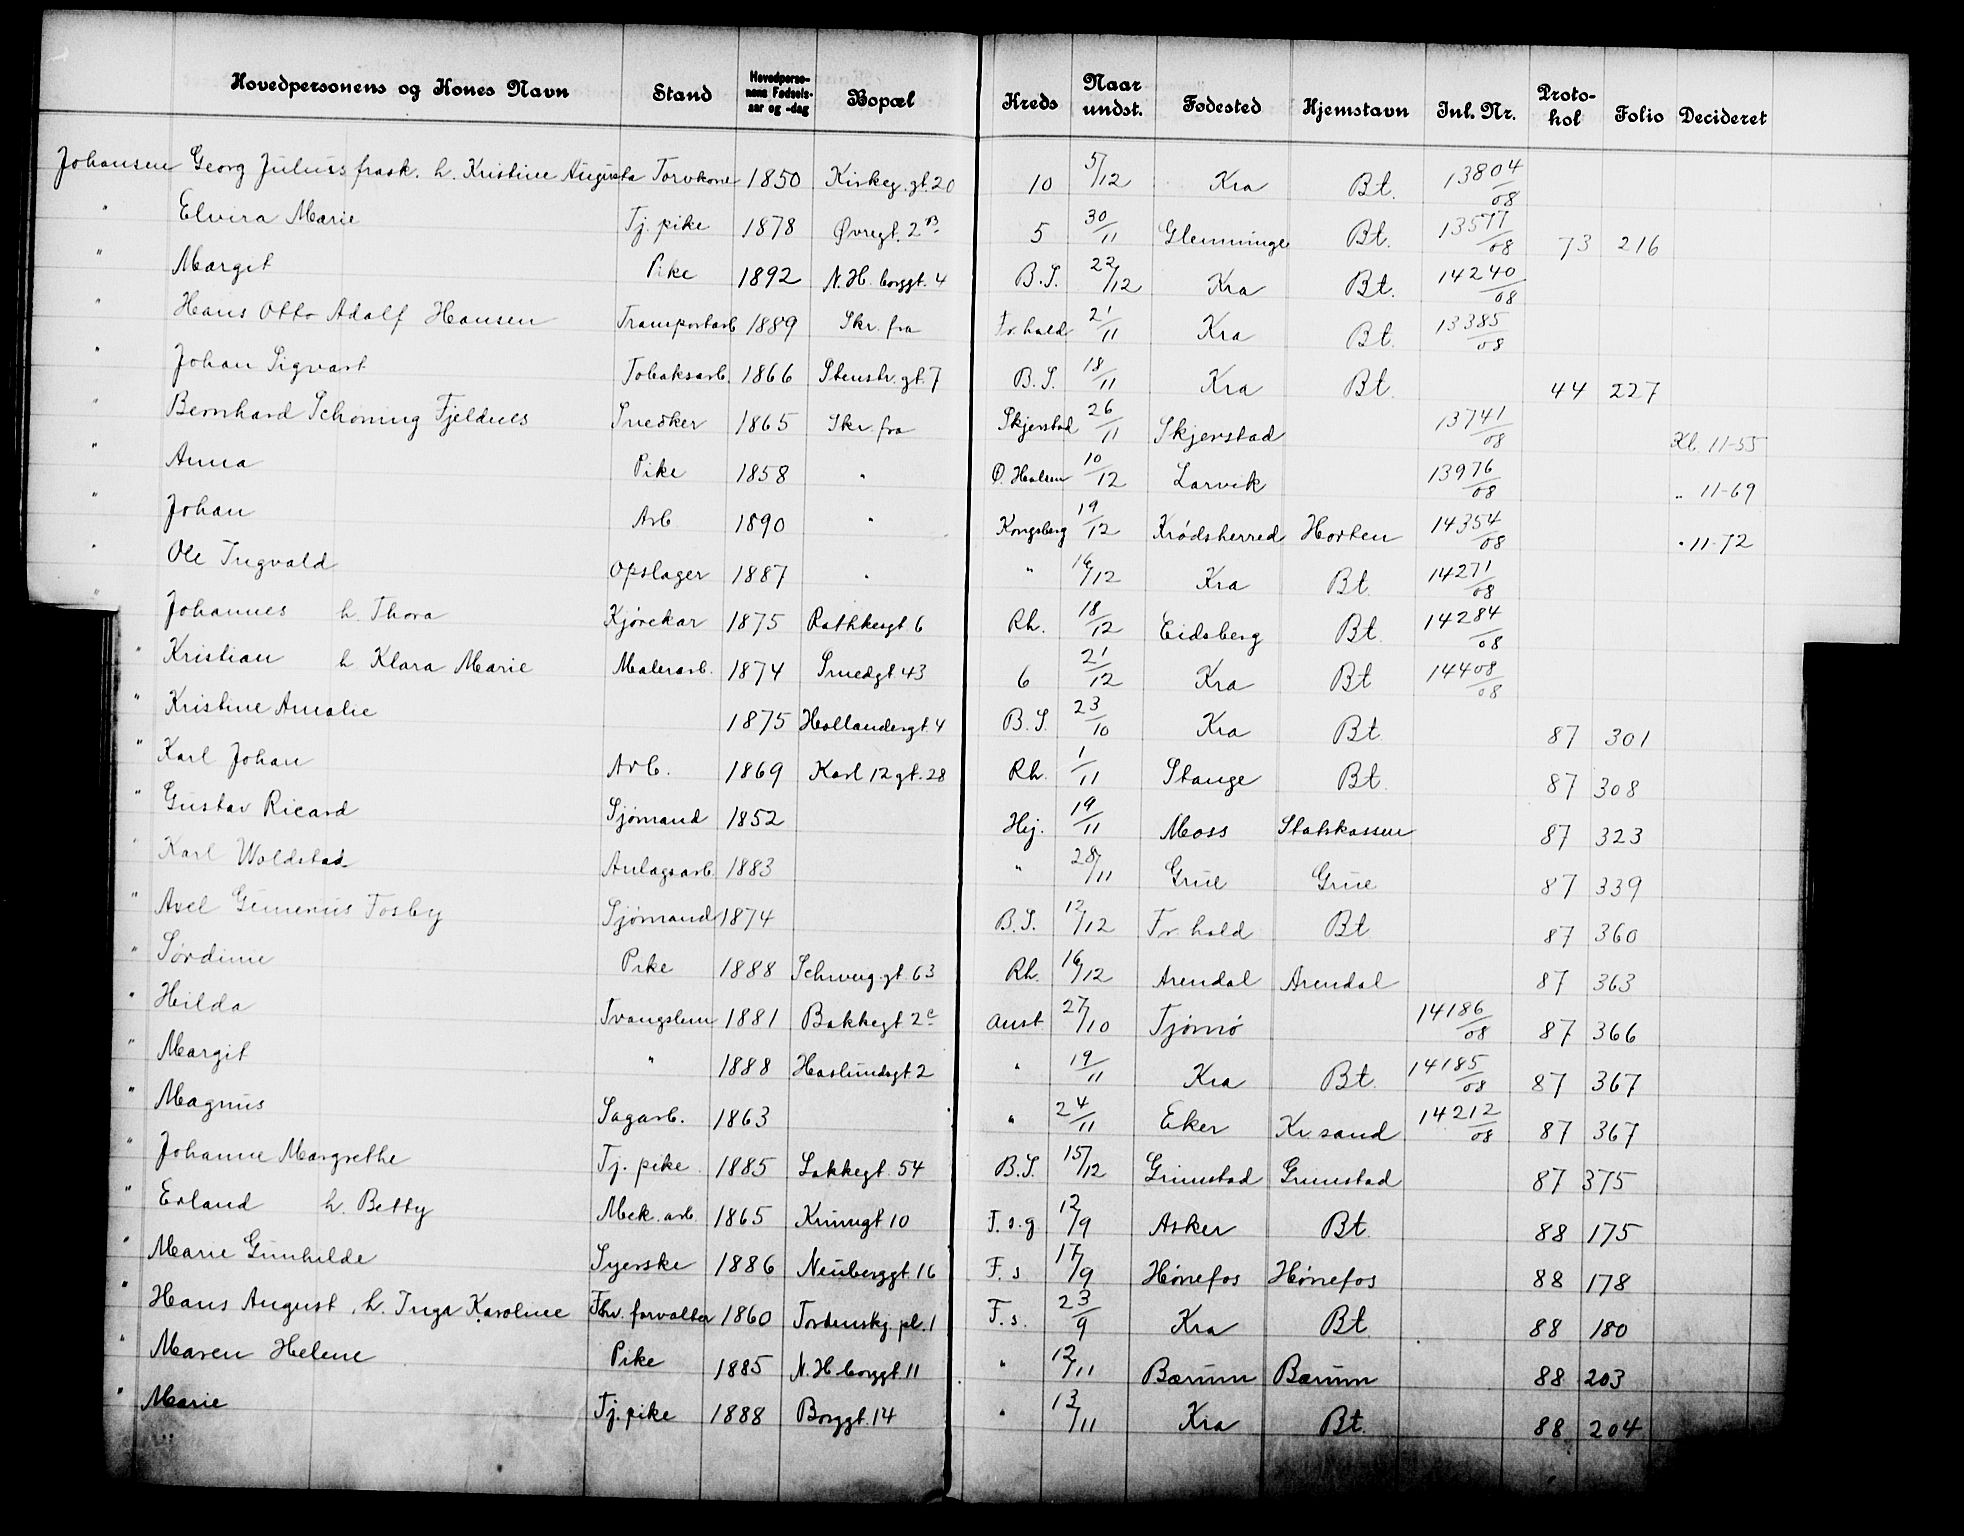 Hovedpersonens og Kones Navn Stand Hovedperso-nens Fødsels-aar og -dag Bopæl Kreds Naar undst. Fødested Hjemstavn Inl. Nr. Proto-kol Folio Decideret
Johansen Georg Julius frask. h. Kristine Augusta Torvkone 1850 Kirkeg. gt 20 10 5/12 Kra Bt. 13804/08
" Elvira Marie Tj. pike 1878 Øvregt. 2 B 5 30/11 Glemminge Bt. 13577/08 73 216
" Margit Pike 1892 N. H. borggt. 4 B. S. 22/12 Kra Bt. 14240/08
" Hans Otto Adolf Hansen Transportarb 1889 Skr. fra Tr. hald 21/11 Kra Bt. 13385/08
" Johan Sigvart Tobaksarb. 1866 Stenstr. gt. 7 B. S. 18/11 Kra Bt. 44 227
" Bernhard Schoning Fjeldnes Snedker 1865 Skr. fra Skjerstad 26/11 Skjerstad 13741/08 Kl. 11-55
" Anna Pike 1858 " Ø. Halsen 10/12 Larvik 13976/08 " 11-69
" Johan Arb 1890 " Kongsberg 19/12 Krødsherred Horten 14354/08 " 11-72
" Ole Ingvald Opslager 1887 " " 16/12 Kra Bt. 14271/08
" Johannes h. Thora Kjørekar 1875 Rathkesgt 6 Rh. 18/12 Eidsberg Bt. 14284/08
" Kristian h Klara Marie Malerarb. 1874 Smedgt 43 6 21/12 Kra Bt 14408/08
" Kristine Amalie 1875 Hollandergt. 4 B. S. 23/10 Kra Bt. 87 301
" Karl Johan Arb. 1869 Karl 12 gt. 28 Rh. 1/11 Stange Bt. 87 308
" Gustav Ricard Sjømand 1852 Hej. 19/11 Moss Statskassen 87 323
" Karl Woldstad Anlagsarb. 1883 " 28/11 Grue Grue 87 339
" Axel Gimenius Fosby Sjømand 1874 B. S. 12/12 Fr. hald Bt 87 360
" Sørdine Pike 1888 Schweig. gt. 63 Rh. 16/12 Arendal Arendal 87 363
" Hilda Tvangslem 1881 Bakkegt 2 c Anst 27/10 Tjømø 14186/08 87 366
" Margit " 1888 Haslundsgt 2 " 19/11 Kra Bt. 14185/08 87 367
" Magnus Sagarb. 1863 " 24/11 Eker Kr. sand 14212/08 87 367
" Johanne Margrethe Tj. pike 1885 Lakkegt. 54 B. S. 15/12 Grimstad Grimstad 87 375
" Erland h. Betty Mek. arb. 1865 Krumgt 10 F. s. g 12/9 Asker Bt. 88 175
" Marie Gunhilde Syerske 1886 Neuberggt. 16 F. s 17/9 Hønefos Hønefos 88 178
" Hans August, h. Inga Karoline Fhv. forvalter 1860 Tordenskj. pl. 1 F. s. 23/9 Kra Bt. 88 180
" Maren Helene Pike 1885 N. H borggt 11 " 12/11 Bærum Bærum 88 203
" Marie Tj. pike 1888 Borggt. 14 " 13/11 Kra Bt. 88 204